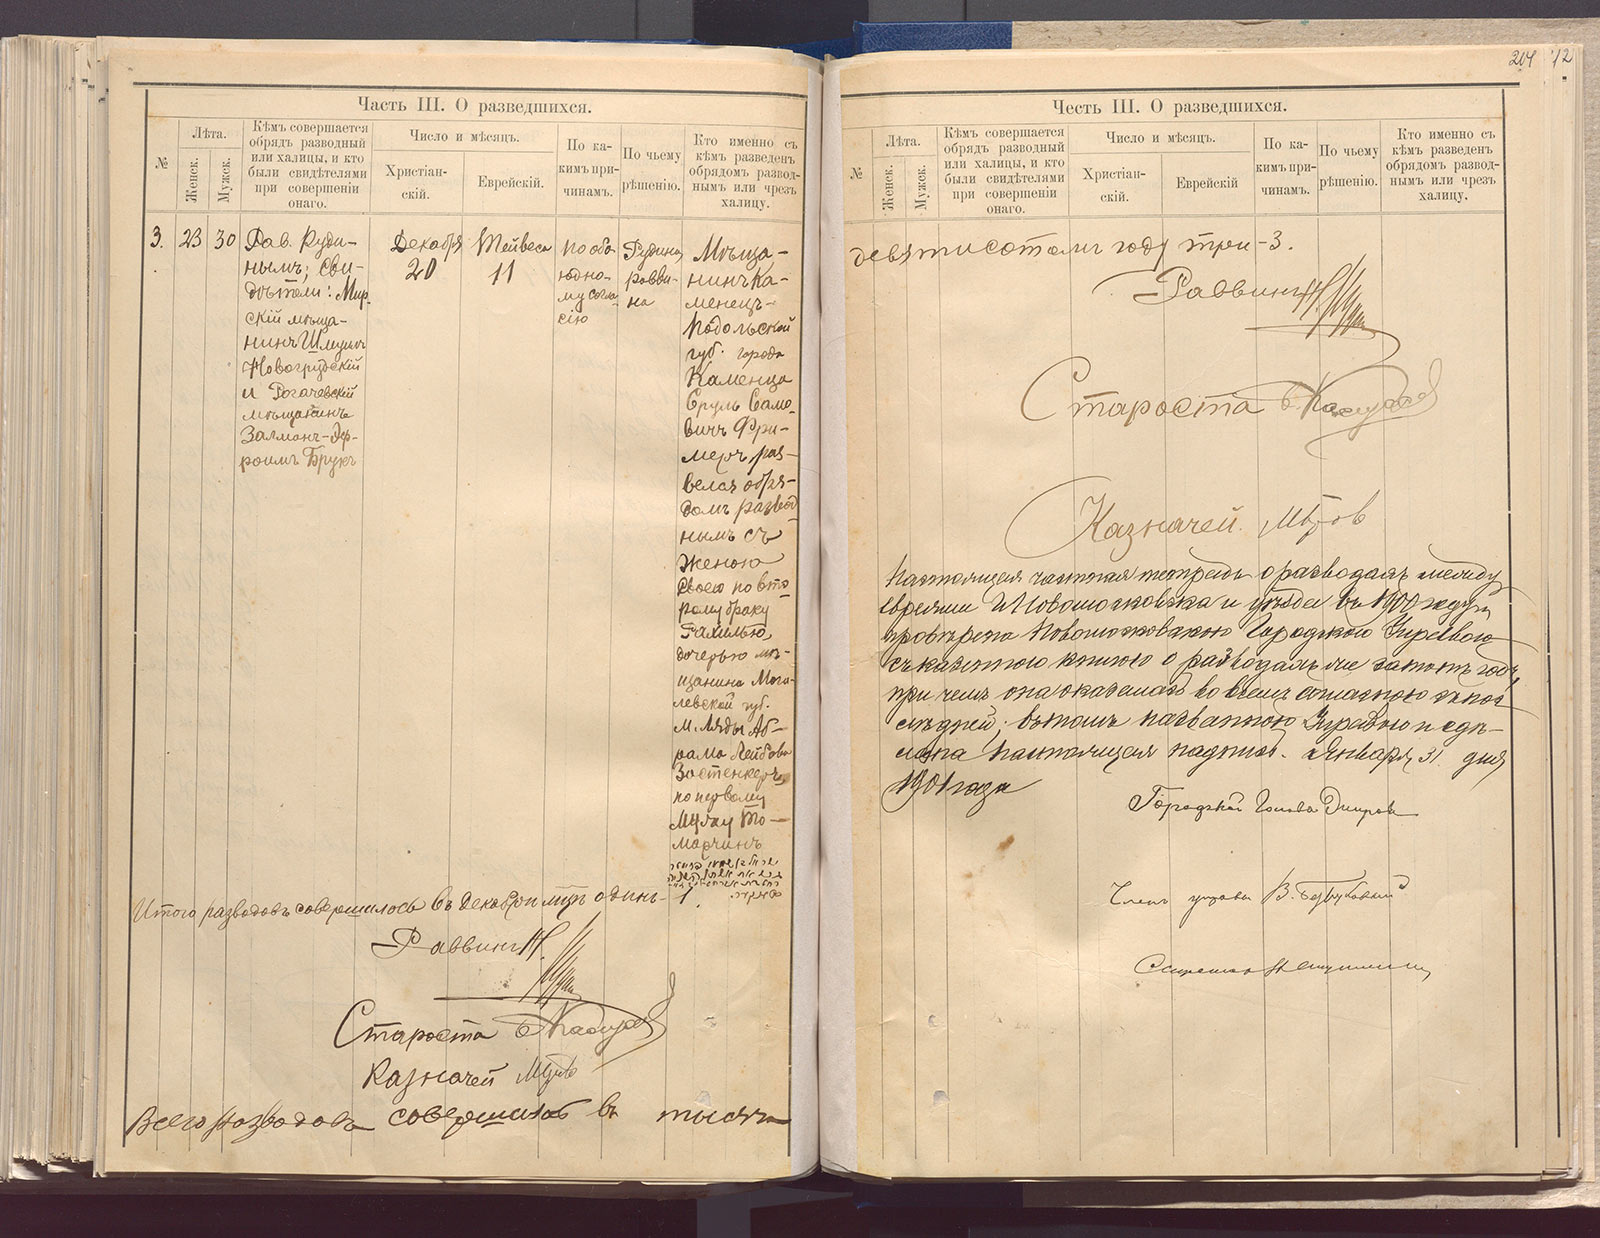 Часть III. О разведшихся.
№
Лѣта.
Женск.
Мужск.
Кѣмъ совершается
обрядъ разводный
или халицы, и кто
были свидѣтелями
при совершеніи
онаго.
Число и мѣсяцъ.
Христіан-
скій.
Еврейскій.
По ка-
кимъ при-
чинамъ.
По чьему
рѣшенію.
Кто именно съ
кѣмъ разведенъ
обрядомъ развод-
нымъ или чрезъ
халицу.
3.
23
30
Рав. Руди-
нымъ; сви-
дѣтели: Мир
скій мѣща-
нинъ Шмуилъ
Новогрудскій
и Рогачевскій
мѣщанинъ
Залманъ-Эф-
роимъ Брукъ
Декабря
20
Тейвеса
11
По обо
юдно-
му согла
сію
Рудина
равви-
на
Мѣща-
нинъ Ка-
менец-
Подольской
губ. города
Каменца
Сруль Само-
вичъ Фри-
меръ раз-
велся обря-
домъ развод
нымъ съ
женою
своею по вто
рому браку
Рахилью
дочерью мѣ-
щанина Моги
левской губ.
м. Ляды Аб-
рама Лейбова
по первому
мужу То-
марчинъ
Итого разводовъ совершилось въ декабрѣ м-цѣ одинъ- 1.
Раввинъ
Староста
Казначей
Всего разводовъ совершилось въ тысяча
204
12
Честь III. О разведшихся.
№
Лѣта.
Женск.
Мужск.
Кѣмъ совершается
обрядъ разводный
или халицы, и кто
были свидѣтелями
при совершеніи
онаго.
Число и мѣсяцъ.
Христіан-
скій.
Еврейскій
По ка-
кимъ при-
чинамъ.
По чьему
рѣшенію.
Кто именно съ
кѣмъ разведенъ
обрядомъ развод-
нымъ или чрезъ
халицу.
девятисотомъ году три-3.
Раввинъ
Староста
Казначей
Настоящая частная тетрадь о разводахъ между
евреями г. Новомосковска и уѣзда въ 1900 году
провѣрена Новомосковскою Городскою Управою
съ казенною книгою о разводахъ же за тотъ годъ,
при чемъ она оказалась во всемъ согласною съ пос
лѣдней; въ чемъ названною Управою и сдѣ-
лана настоящая надпись. Января 31 дня
1901 года
Городской Голова
Членъ управы
Секретарь